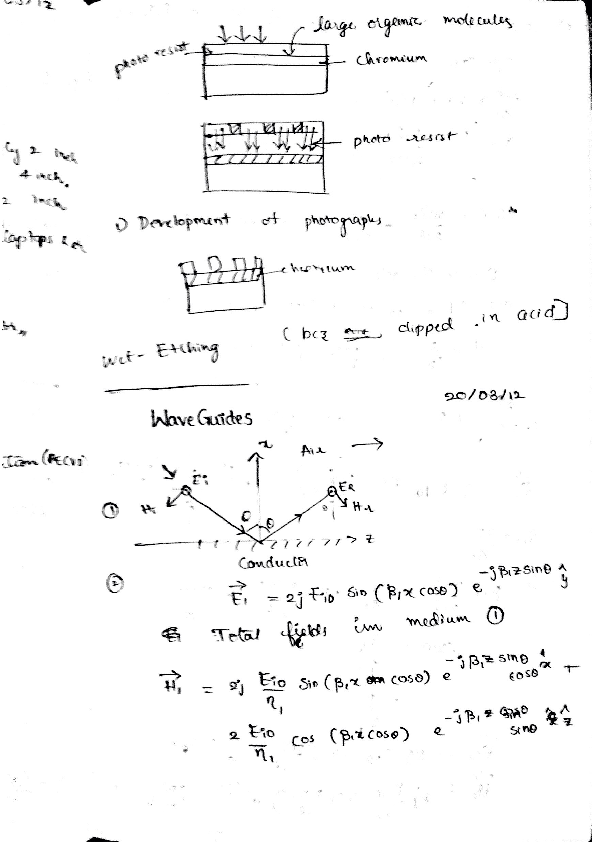 large organic molecules
photo resist
chromium
photo resist
Cy 2 inch
4 inch.
2 inch
1) Development of photographs
chromium
Wet-Etching (bcz dipped in acid]
20/03/12
Wave Guides
x Air
Ei ER
① Hi θ θ Hr
z
Conductor
② E₁ = 2j Ei0 sin (β₁x cosθ) e^-jβ₁z sinθ ŷ
Total fields in medium ①
H₁ = 2j Ei0/η₁ sin (β₁x cosθ) e^-jβ₁z sinθ cosθ x̂ +
2 Ei0/η₁ cos (β₁x cosθ) e^-jβ₁z sinθ sinθ ẑ